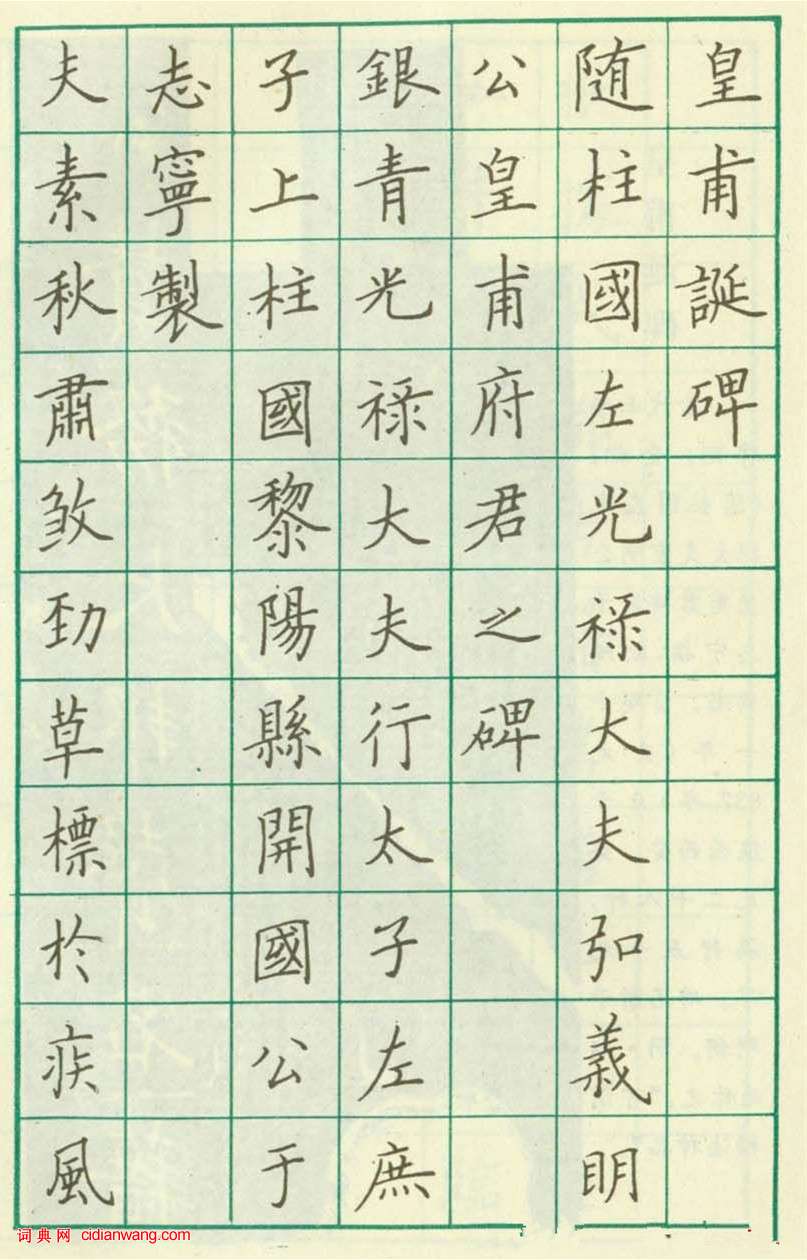 皇甫誕碑
随柱國左光禄大夫弘義明
公皇甫府君之碑
銀青光禄大夫行太子左庶
子上柱國黎陽縣開國公于
志寧製
夫素秋肅煞勁草標於疾風
词典网 cidianwang.com